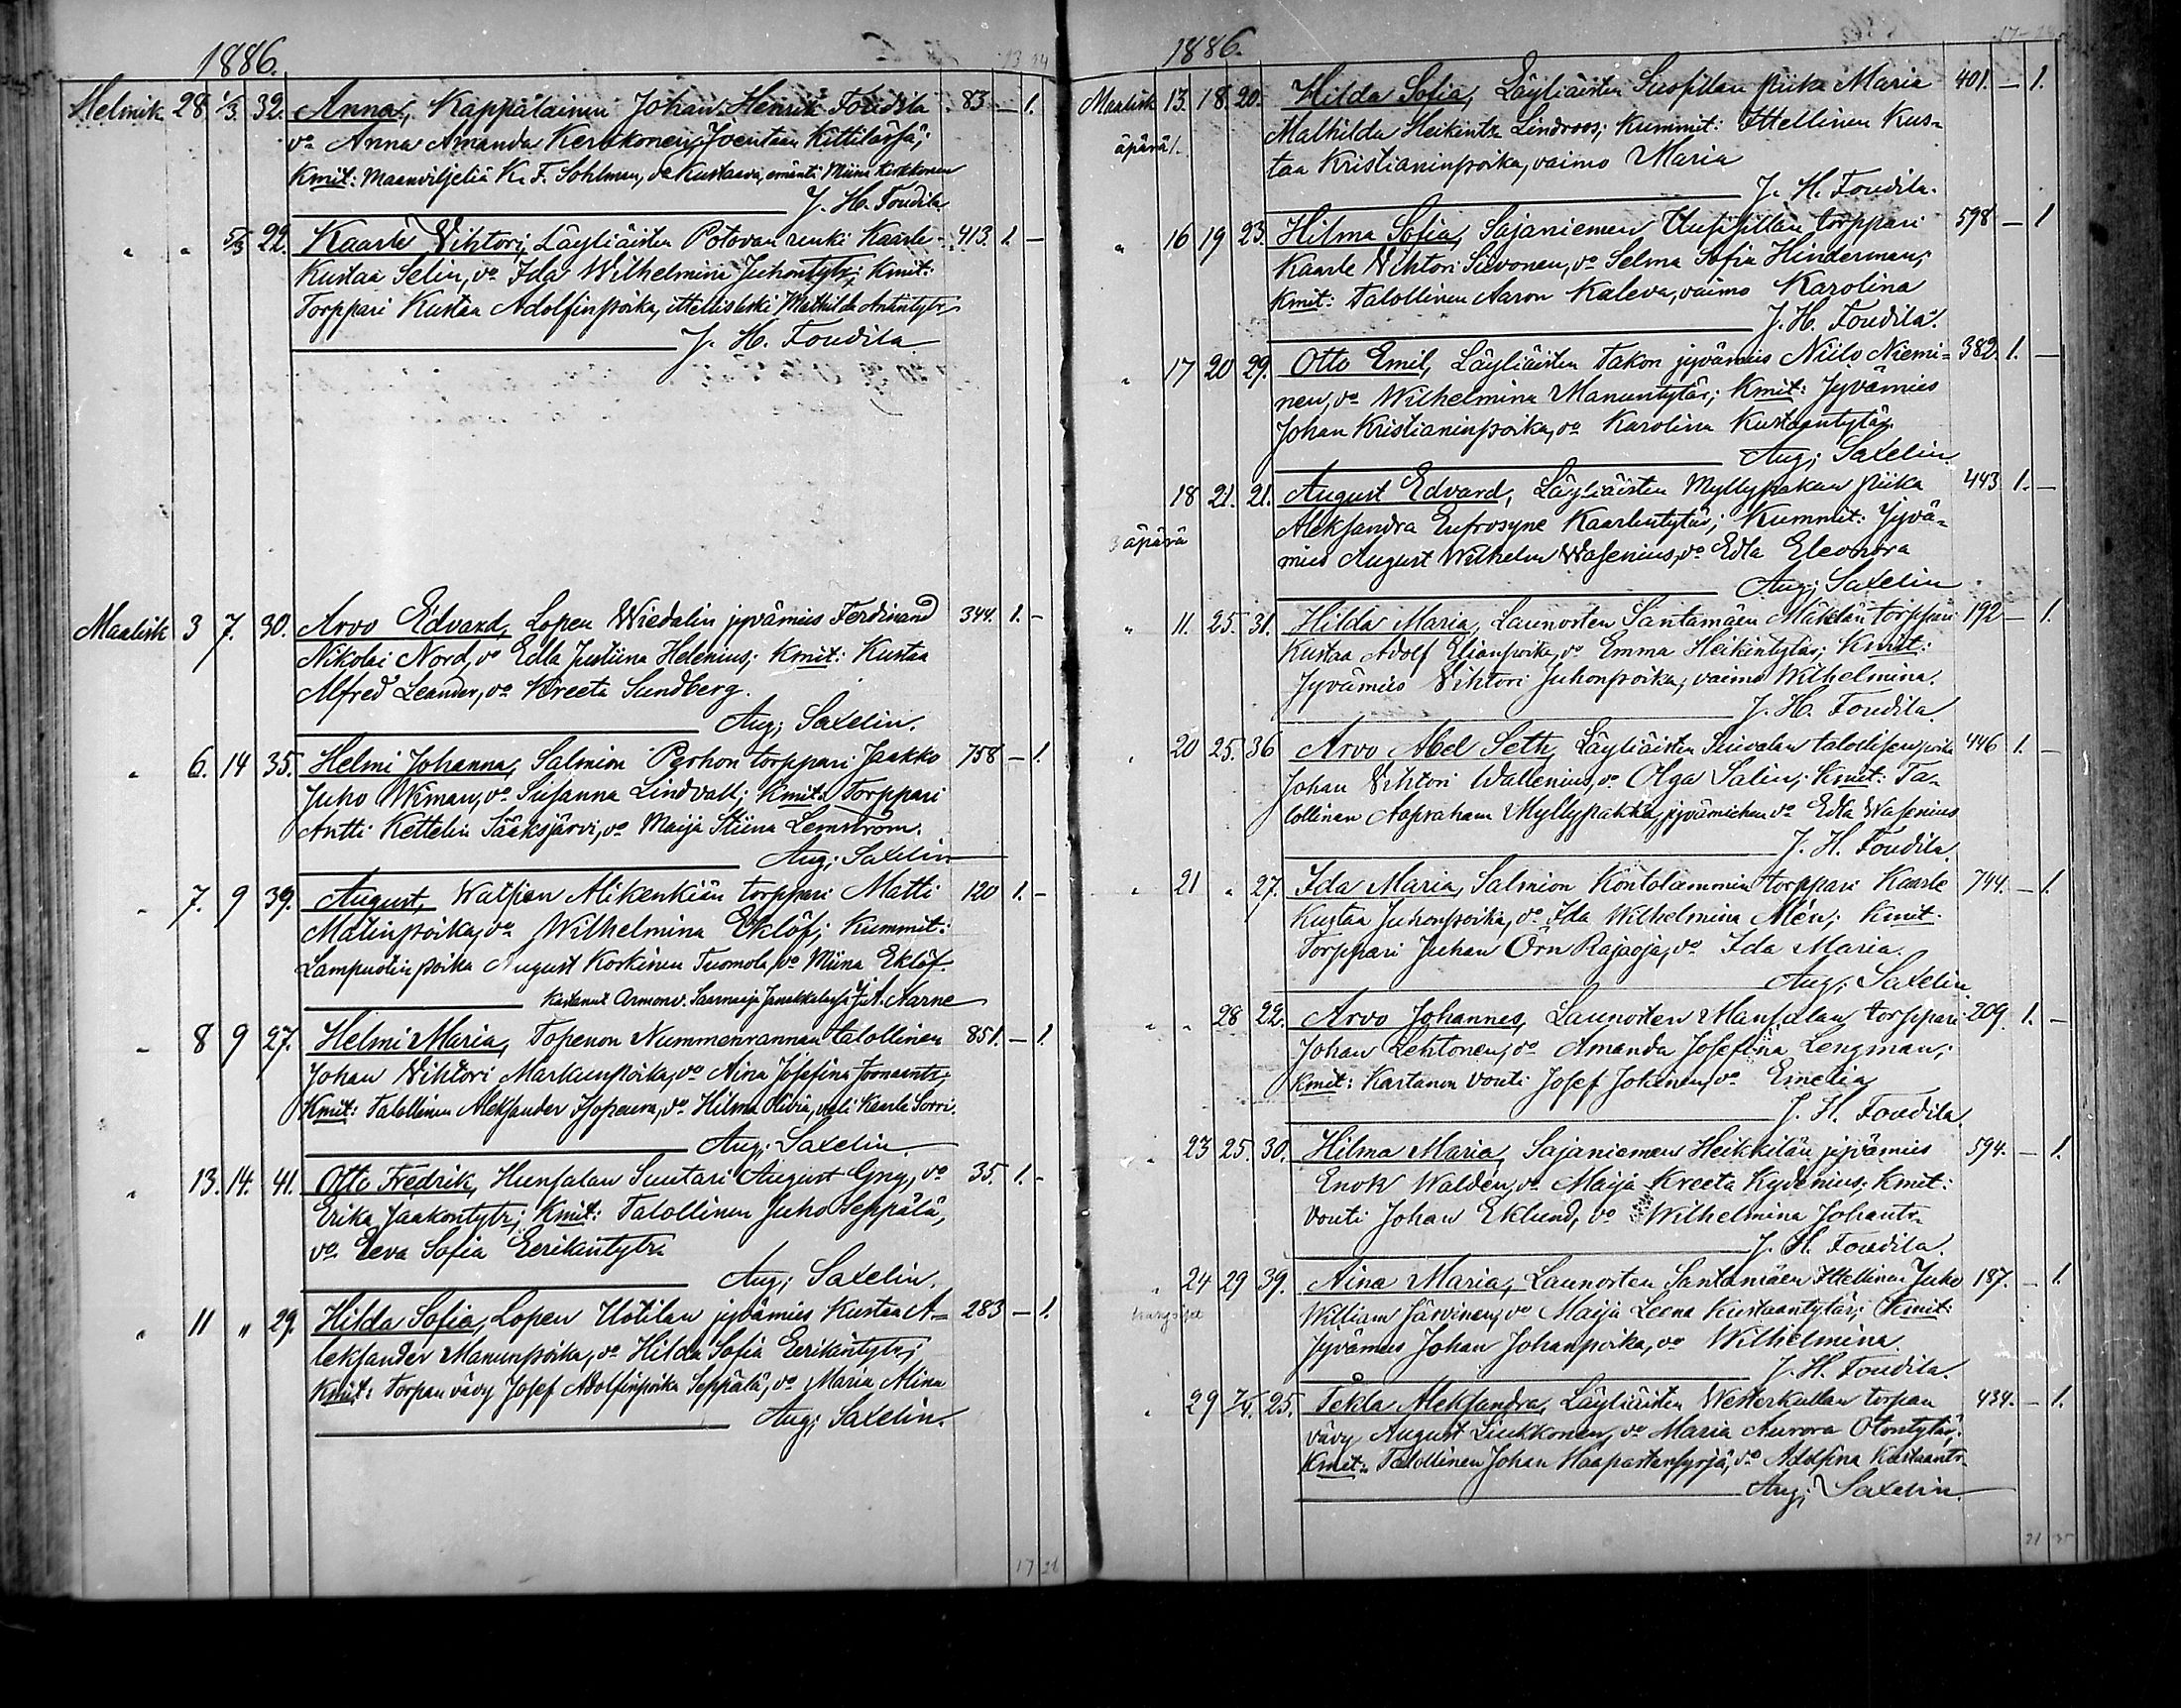 1886.
Helmik 28. 1/3. 32. Anna, Kappalainen Johan Henrik Foudila 83 — 1.
vo Anna Amanda Kerkkonen, Joentaan Kittilässä;
Kmit: Maanviljeliä K. F. Sohlman, vo Kustaava, emäntä Miina Kerkkonen
J. H. Foudila
" " 5/3 22. Kaarle Vihtori, Läyliäisten Potovan renki Kaarle 413. 1 —
Kustaa Selin, vo Ida Wilhelmina Juhontytr; Kmit:
Torppari Kustaa Adolfinpoika, ittellisleski Mathilda Antintytr
J. H. Foudila
Maalisk 3 7. 30. Arvo Edvard, Lopen Wiedalin jyvämies Ferdinand 344. 1. —
Nikolai Nord, vo Edla Justiina Helenius; Kmit: Kustaa
Alfred Leander, vo Kreeta Sundberg.
Aug; Saxelin.
" 6. 14 35. Helmi Johanna, Salmion Perhon torppari Jaakko 758 — 1.
Juho Wiman, vo Susanna Lindvall; Kmit: Torppari
Antti Kettelin Sääksjärvi, vo Maija Stiina Lemström.
Aug; Saxelin
" 7. 9 39. August, Watsjen Alikenkiän torppari Matti 120 1. —
Matinpoika, vo Wilhelmina Eklöf; Kummit:
Lampuotin poika August Koskinen Tuomola, vo Miina Eklöf.
Kastanut Armonv. Saarnaaja Janakkalassa J. A. Narne
" 8 9 27. Helmi Maria, Topenon Nummenrannan talollinen 851. — 1.
Johan Vihtori Markunpoika, vo Aina Josefina Joonaantr;
Kmit: Talollinen Aleksander Isopeura, vo Hilma Olivia, veli Kaarle Sorri.
Aug; Saxelin
" 13. 14. 41. Otto Fredrik, Hunsalan Suutari August Gry, vo 35. 1. —
Erika Jaakontytr; Kmit: Talollinen Juho Seppälä,
vo Eeva Sofia Eerikintytr.
Aug; Saxelin.
" 11 " 29. Hilda Sofia, Lopen Uotilan jyvämies Kustaa A- 283 — 1.
leksander Manunpoika, vo Hilda Sofia Eerikintytr;
Kmit: Torpan vävy Josef Adolfinpoika Seppälä, vo Maria Alina
Aug; Saxelin.
17 21
1886.
Maalisk 13. 18. 20. Hilda Sofia, Läyliäisten Suopillan piika Maria 401. — 1.
äpärä 1. Mathilda Heikintr Lindroos; Kummit: Ittellinen Kus-
taa Kristianinpoika, vaimo Maria
J. H. Foudila.
" 16 19 23. Hilma Sofia, Sajaniemen Uusipillan torppari 598 — 1
Kaarle Vihtori Siivonen, vo Selma Sofia Hinderman;
Kmit: Talollinen Aaron Kaleva, vaimo Karolina
J. H. Foudila.
" 17 20 29. Otto Emil, Läyliäisten Takon jyvämies Niilo Niemi- 382 1. —
nen, vo Wilhelmina Manuntytär; Kmit: Jyvämies
Johan Kristianinpoika, vo Karolina Kustaantytär
Aug; Saxelin.
18 21. 21. August Edvard, Läyliäisten Myllypakan piika 443 1. —
3 äpärä Aleksandra Eufrosyne Kaarlentytär; Kummit: Jyvä-
mies August Wilhelm Wasenius, vo Edla Eleonora
Aug; Saxelin
" 11. 25. 31. Hilda Maria, Launosten Santamäen Mäkelän torppari 192 — 1.
Kustaa Adolf Elianpoika, vo Emma Heikintytär; Kmit:
Jyvämies Vihtori Juhonpoika, vaimo Wilhelmina.
J. H. Foudila
" 20 25. 36 Arvo Abel Seth, Läyliäisten talollisen poika 446 1. —
Johan Vihtori Wallenius, vo Olga Salin; Kmit: Ta-
lollinen Aapraham Myllypakka, jyvämiehen vo Edla Wasenius
J. H. Foudila
" 21 " 27. Ida Maria, Salmion Kontolammin torppari Kaarle 744. — 1.
Kustaa Juhonpoika, vo Ida Wilhelmina Alén; Kmit:
Torppari Juhan Örn Rajaoja, vo Ida Maria.
Aug; Saxelin
" " 28 22. Arvo Johannes, Launosten Mansalan torppari 209 1. —
Johan Lehtonen, vo Amanda Josefiina Lengman;
Kmit: Kartanon Vouti Josef Jokinen, vo Emelia
J. H. Foudila
" 23 25. 30. Hilma Maria, Sajaniemen Heikkilän jyvämies 594. — 1.
Enok Walden, vo Maija Kreeta Kydenius; Kmit:
Vouti Johan Eklund, vo Wilhelmina Johantr.
J. H. Foudila.
" 24 29 39. Aina Maria, Launosten Santamäen Ittellinen Juho 187. — 1.
William Järvinen, vo Maija Leena Kustaantytär; Kmit:
Jyvämies Johan Johanpoika, vo Wilhelmina.
J. H. Foudila.
" 29 7/4. 25. Tekla Aleksandra, Läyliäisten Westerkullan torpan 434. — 1.
vävy August Liukkonen, vo Maria Aurora Otontytär;
Kmit: Talollinen Johan Haapastensyrjä, vo Adolfina Kustaantr.
Aug; Saxelin.
21 35